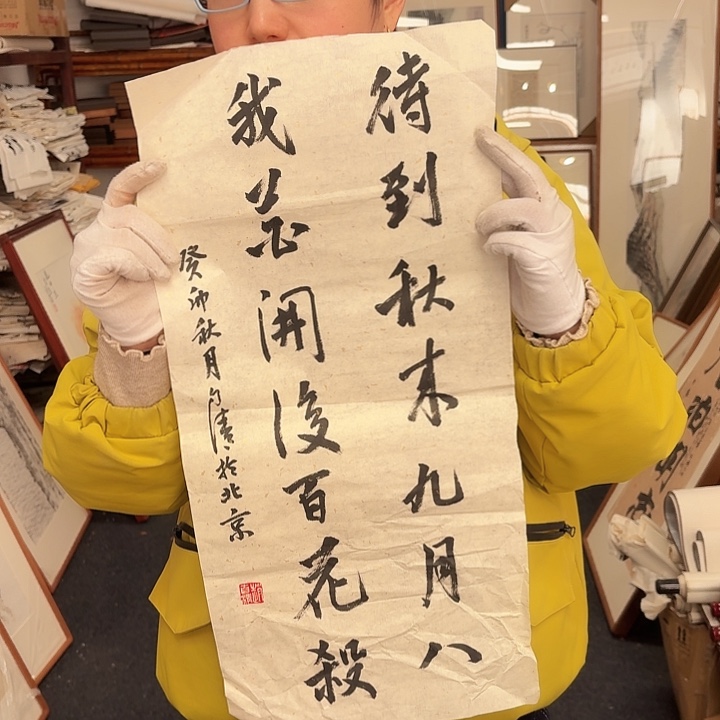 待到秋来九月八
我花開後百花殺
癸卯秋月清於北京